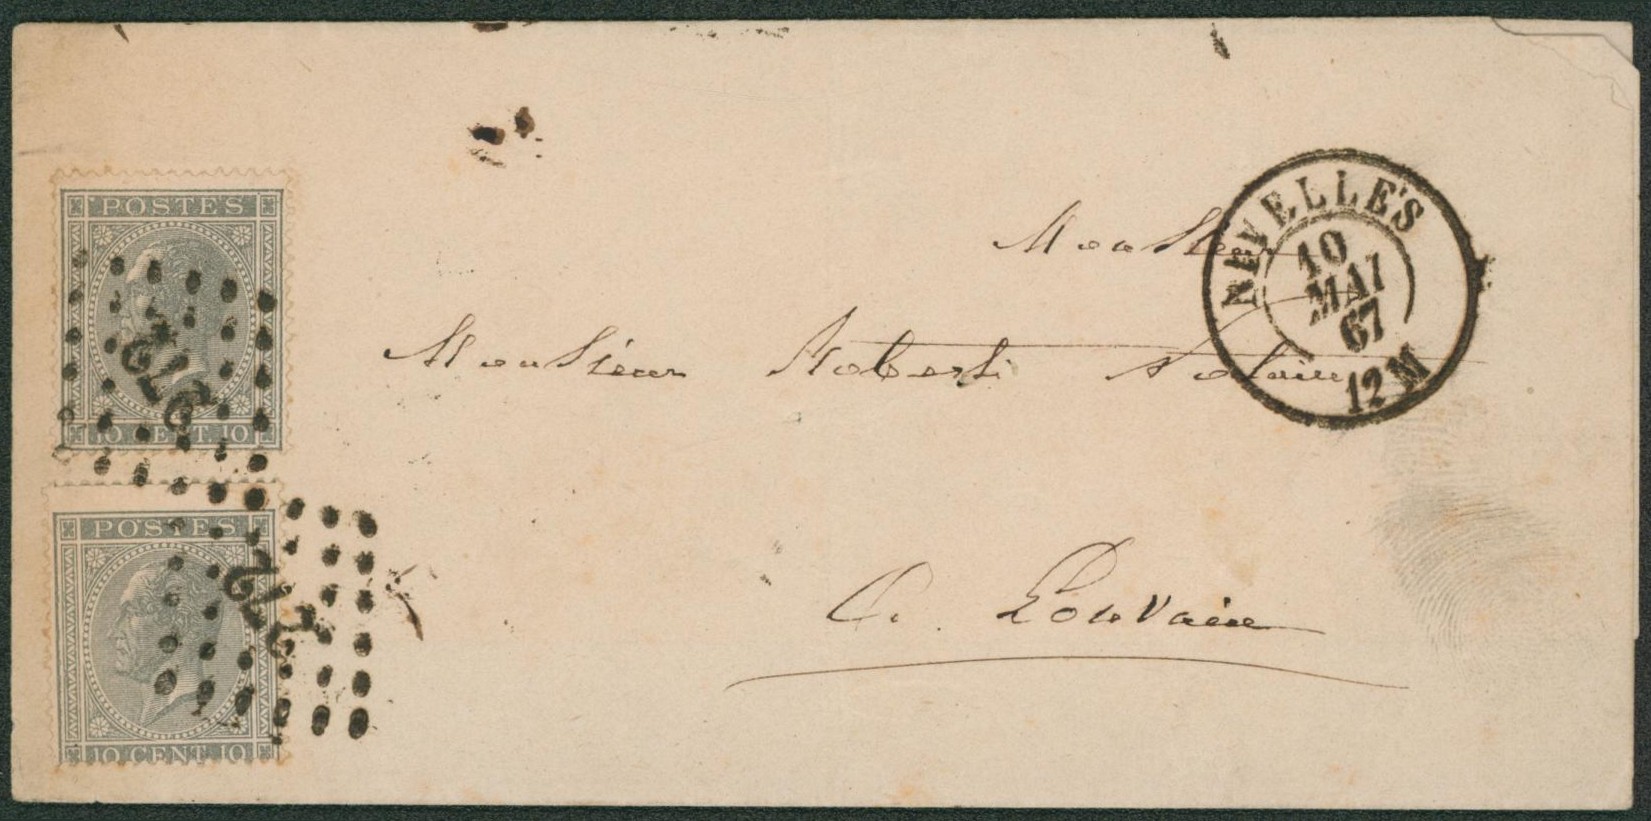 POSTES
10 CENT. 10
272
POSTES
10 CENT. 10
272
NIVELLES
10
MAI
67
12 M
Monsieur
Monsieur Robert Notaire
à Louvain